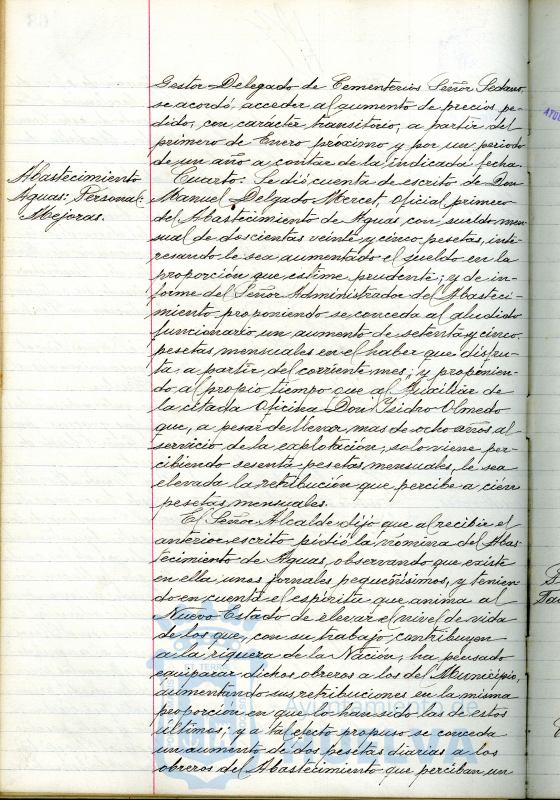 Gestor Delegado de Cementerios Señor Sedano,
se acordó, acceder al aumento de precios pe-
dido, con carácter transitorio, a partir del
primero de Enero próximo y por un periodo
de un año a contar de la indicada fecha.
Abastecimiento
Aguas: Personal:
Mejoras.
Cuarto: Se dió cuenta de escrito de Don
Manuel Delgado Mercet, Oficial primero
del Abastecimiento de Aguas, con sueldo men-
sual de doscientas veinte y cinco pesetas, inte-
resando le sea aumentado el sueldo en la
proporción que estime prudente; y de in-
forme del Señor Administrador del Abasteci-
miento proponiendo se conceda al aludido
funcionario un aumento de setenta y cinco
pesetas mensuales en el haber que disfru-
ta, a partir del corriente mes; y proponien-
do al propio tiempo que al Auxiliar de
la citada Oficina Don Isidro Olmedo
que, a pesar de llevar mas de ocho años al
servicio de la explotación, solo viene per-
cibiendo sesenta pesetas mensuales, le sea
elevada la retribución que percibe a cien
pesetas mensuales.
El Señor Alcalde dijo que al recibir el
anterior escrito pidió la nómina del Abas-
tecimiento de Aguas, observando que existe
en ella unos jornales pequeñisimos, y tenien-
do en cuenta el espiritu que anima al
Nuevo Estado de elevar el nivel de vida
de los que, con su trabajo, contribuyen
a la riqueza de la Nación, ha pensado
equiparar dichos obreros a los del Municipio,
aumentando sus retribuciones en la misma
proporción en que lo han sido las de estos
últimos; y a tal efecto propuso se conceda
un aumento de dos pesetas diarias a los
obreros del Abastecimiento que perciban un
Ayuntamiento de